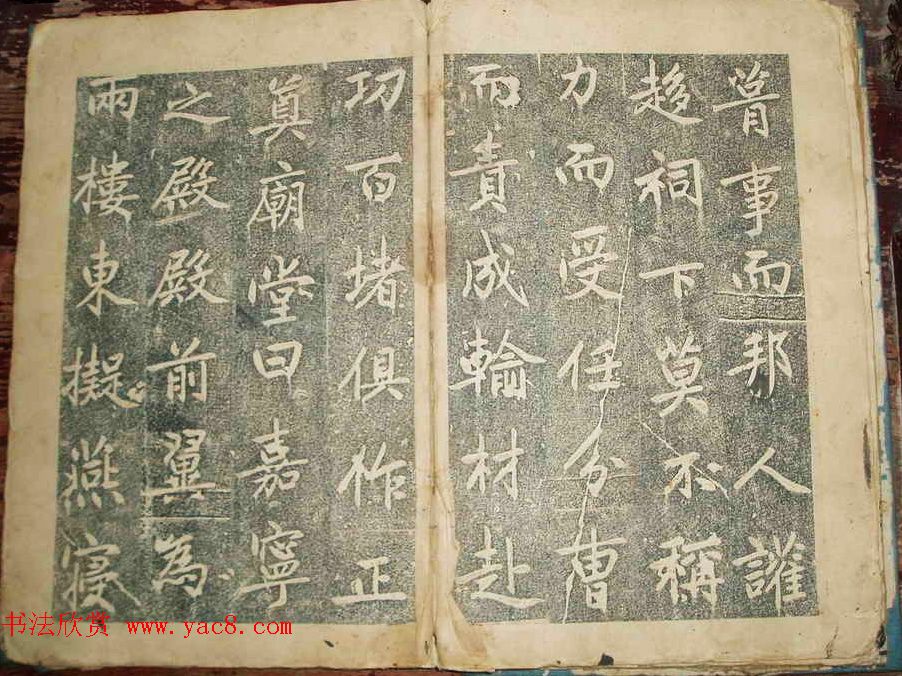 胥事而邦人讙
趍祠下莫不稱
力而受任分曹
而責成輪材赴
㓛百堵俱作正
奠廟堂曰嘉寧
之殿殿前翼為
兩樓東擬燕寢
书法欣赏 www.yac8.com